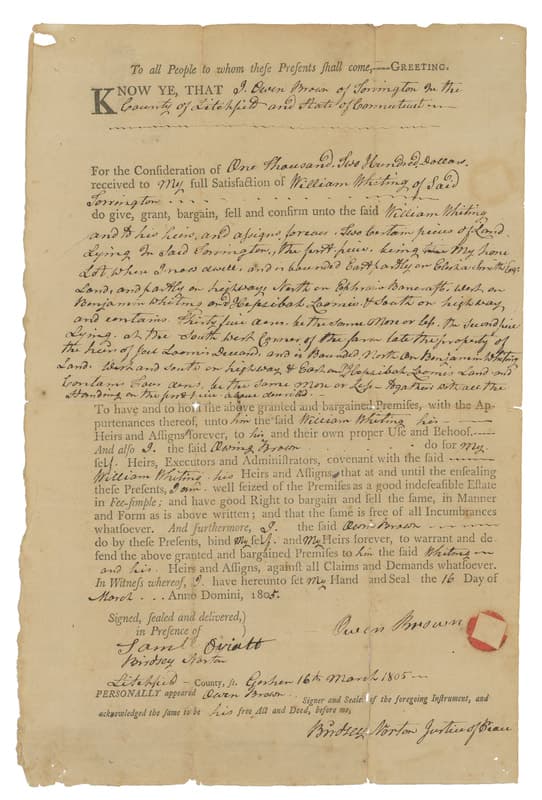 To all People to whom these Presents shall come,—GREETING.
KNOW YE, THAT I. Owen Brown of Torrington In the
County of Litchfield and State of Connecticut
For the Consideration of One Thousand Two Hundred Dollars
received to My full Satisfaction of William Whiting of Said
Torrington
do give, grant, bargain, sell and confirm unto the said William Whiting
and to his heirs and assigns forever Two Certain pieces of Land
Lying In Said Torrington, the first piece being My home
Lot where I now dwell, and is bounded East partly on Esq.
Land, and partly on highway North on Ephraim Bancroft West on
Benjamin Whiting and Hepzibah Loomis & South on highway
and contains Thirty five acres be the same More or less. the second piece
Lying at the South West Corner of the farm late the property of
the heirs of Loomis Deceased, and is Bounded North On Benjamin Whiting
Land West and South on highway & East on Hepzibah Loomis Land and
Contains Four acres, be the same More or Less - together with all the
Standing on the first piece above
To have and to hold the above granted and bargained Premises, with the Ap-
purtenances thereof, unto him the said William Whiting his
Heirs and Assigns forever, to his and their own proper Use and Behoof.
And also I. the said Owing Brown do for My
self. Heirs, Executors and Administrators, covenant with the said
William Whiting his Heirs and Assigns, that at and until the ensealing
these Presents, I am well seized of the Premises as a good indefeasible Estate
in Fee-simple; and have good Right to bargain and sell the same, in Manner
and Form as is above written; and that the same is free of all Incumbrances
whatsoever. And furthermore, I. the said Owen Brown
do by these Presents, bind My self. and My Heirs forever, to warrant and de-
fend the above granted and bargained Premises to him the said Whiting
and his Heirs and Assigns, against all Claims and Demands whatsoever.
In Witness whereof, I. have hereunto set My Hand and Seal the 16 Day of
March Anno Domini, 1805.
Signed, sealed and delivered,)
in Presence of
Owen Brown
Saml Oviatt
Birdsey Norton
Litchfield County, ss. Goshen 16th March 1805
PERSONALLY appeared Owen Brown Signer and Sealer of the foregoing Instrument, and
acknowledged the same to be his free Act and Deed, before me,
Birdsey Norton Justice of Peace